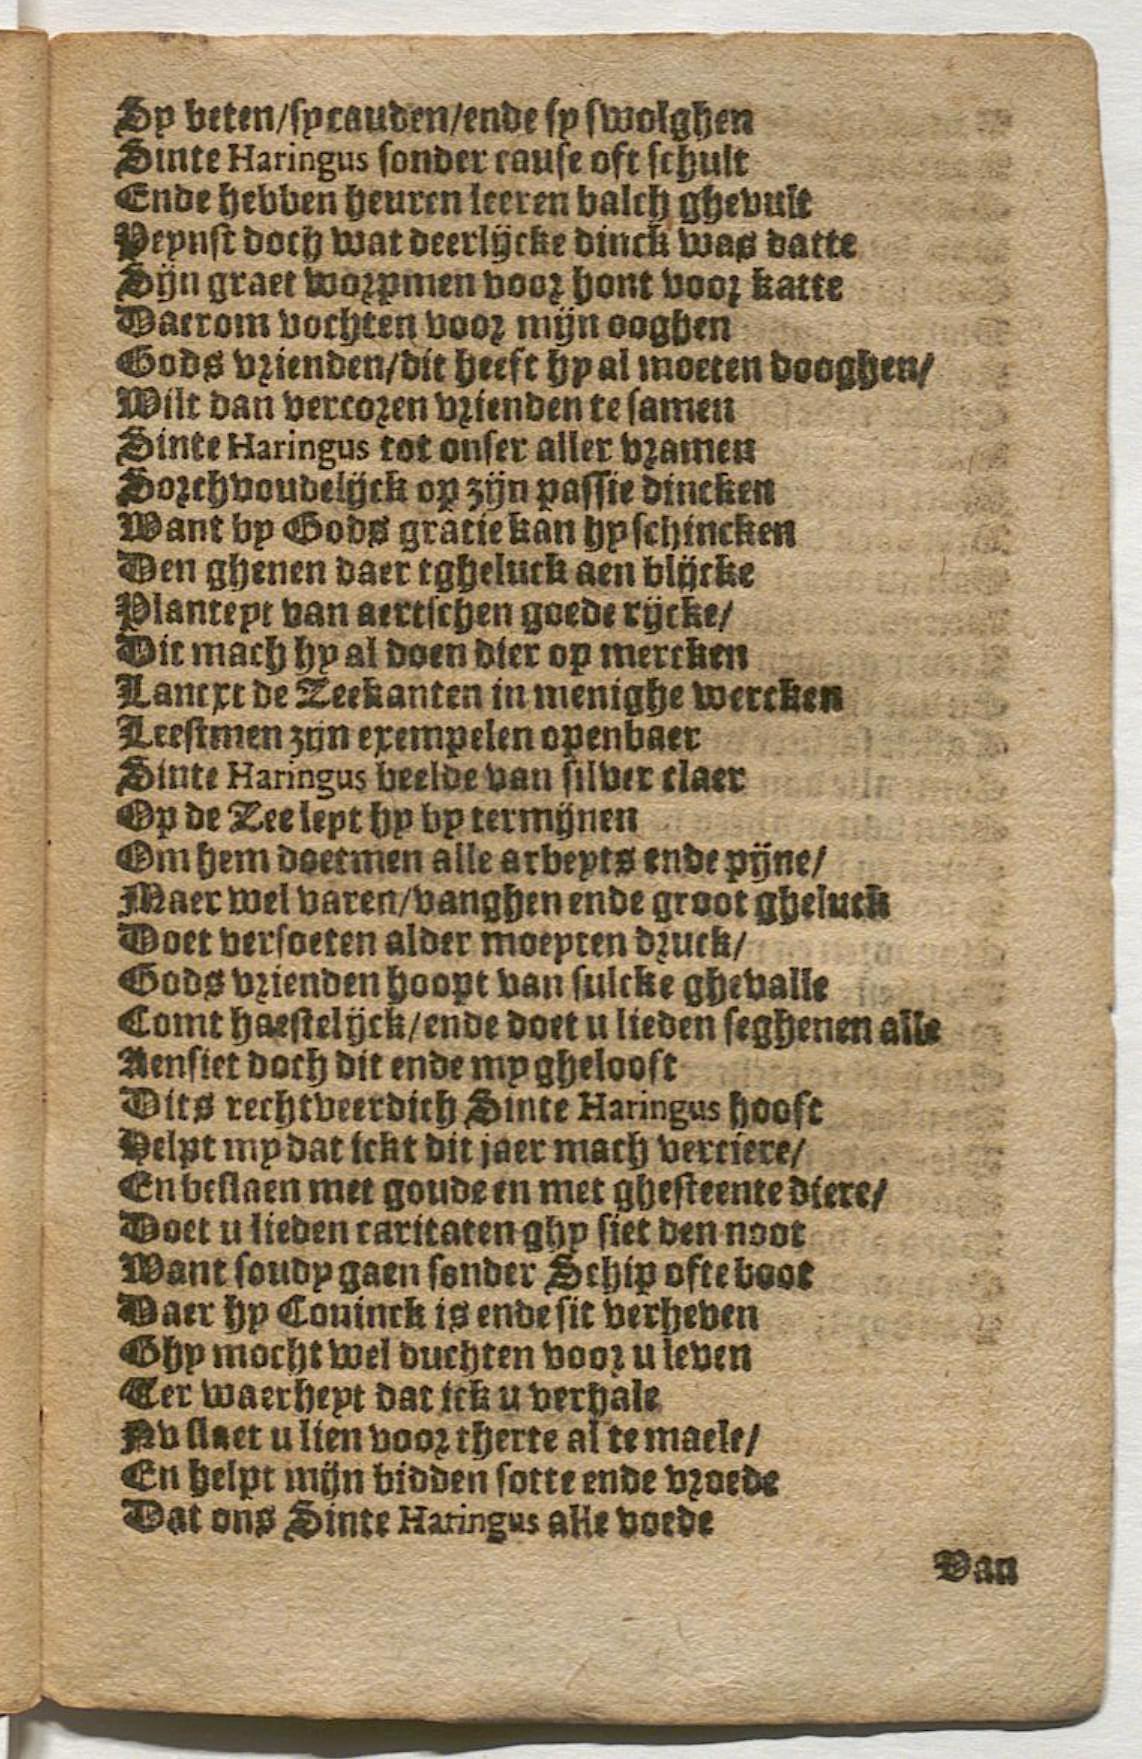 Sy beten/sy cauden/ende sy swolghen
Sinte Haringus sonder cause oft schult
Ende hebben heuren leeren balch ghevult
Peynst doch wat deerlijcke dinck was datte
Sijn graet worpmen voor hont voor katte
Daerom vochten voor mijn ooghen
Gods vrienden/dit heeft hy al moeten dooghen/
Wilt dan vercoren vrienden te samen
Sinte Haringus tot onser aller vramen
Sorchvoudelijck op zijn passie dincken
Want by Gods gratie kan hy schincken
Den ghenen daer tgheluck aen blijcke
Planteyt van aertschen goede rijcke/
Dit mach hy al doen dier op mercken
Lancxt de Zeekanten in menighe wercken
Leestmen zijn exempelen openbaer
Sinte Haringus beelde van silver claer
Op de Zee leyt hy by termijnen
Om hem doetmen alle arbeyts ende pijne/
Maer wel varen/vanghen ende groot gheluck
Doet versoeten alder moeyten druck/
Gods vrienden hoopt van sulcke ghevalle
Comt haestelijck/ende doet u lieden seghenen alle
Aensiet doch dit ende my ghelooft
Dits rechtveerdich Sinte Haringus hooft
Helpt my dat ickt dit jaer mach verciere/
En beslaen met goude en met ghesteente diere/
Doet u lieden caritaten ghy siet den noot
Want soudy gaen sonder Schip ofte boot
Daer hy Coninck is ende sit verheven
Ghy mocht wel duchten voor u leven
Ter waerheyt dat ick u verhale
Nu slaet u lien voor therte al te maele/
En helpt mijn bidden sotte ende vroede
Dat ons Sinte Haringus alle voede
Van